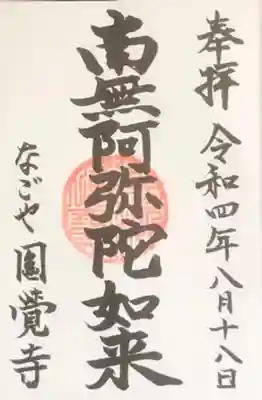 奉拝 令和四年八月十八日
南無阿弥陀如来
なごや圓覺寺